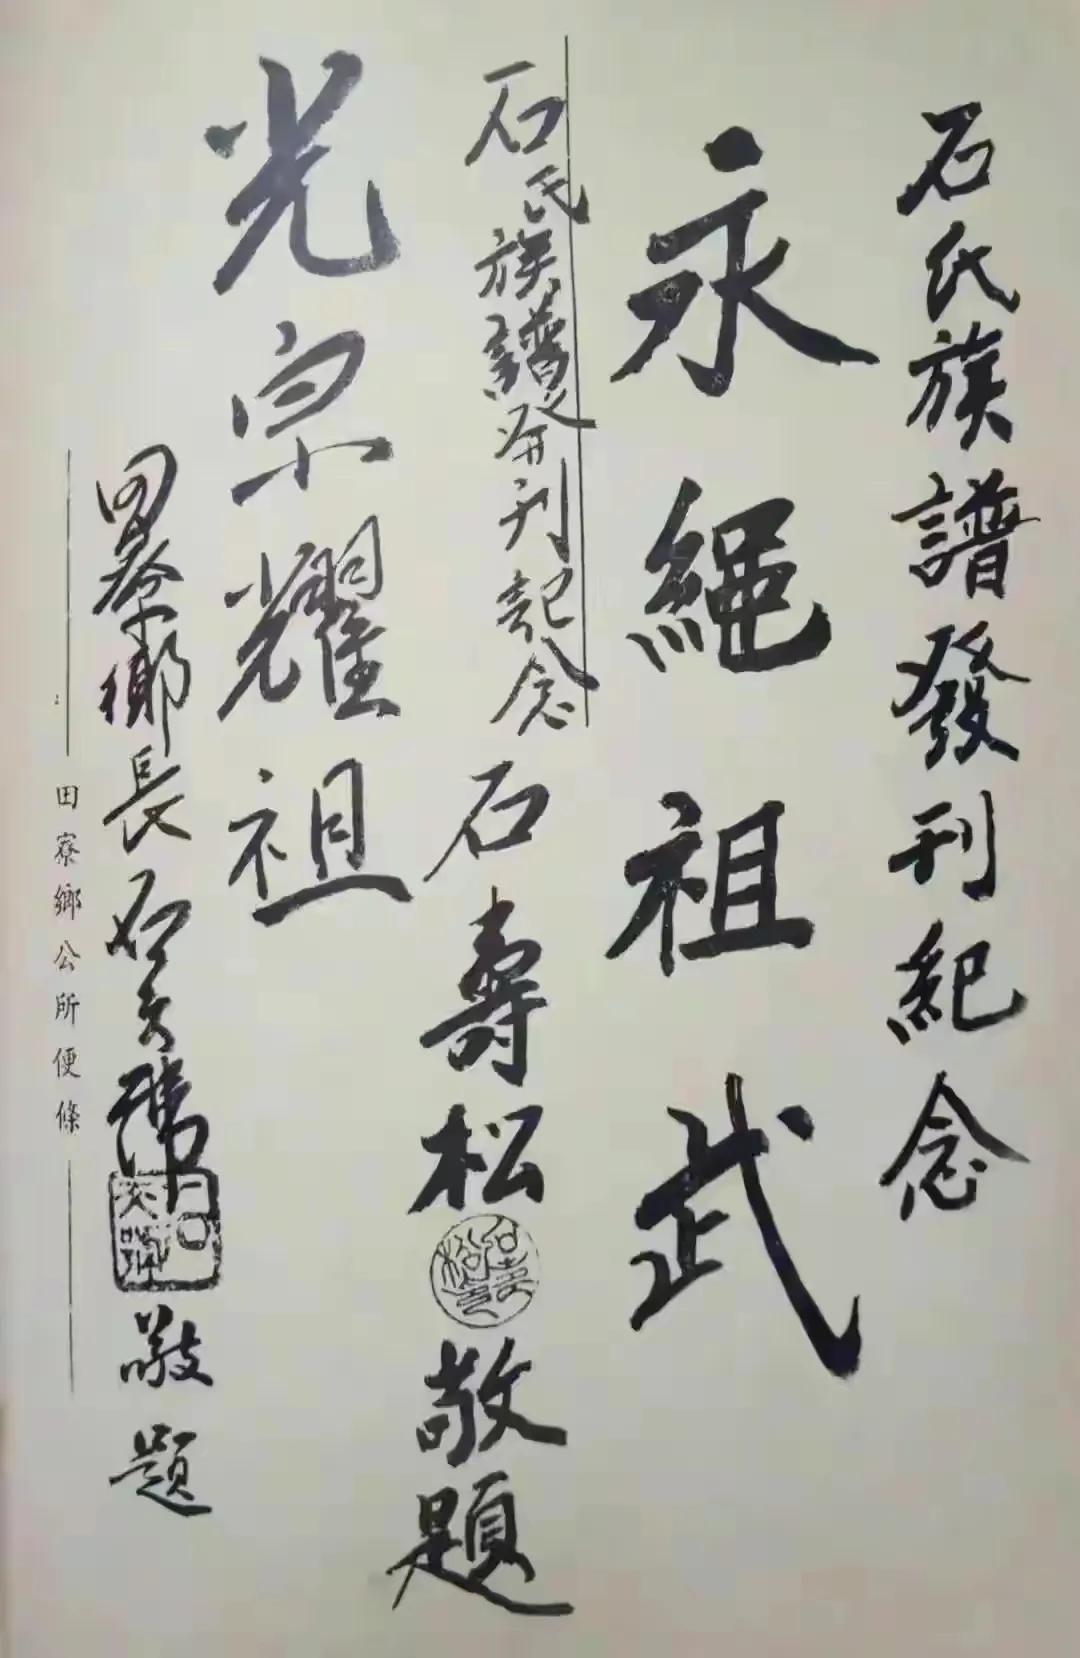 石氏族譜發刊紀念
永繩祖武
石壽松敬題
石氏族譜發刊記念
光宗耀祖
田寮鄉長石
敬題
田寮鄉公所便條